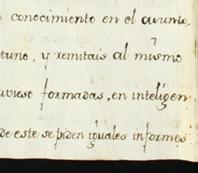 conocimiento en el asunto,
tuno, y remitais al mismo
uviese formadas, en inteligen
de este se piden iguales informes